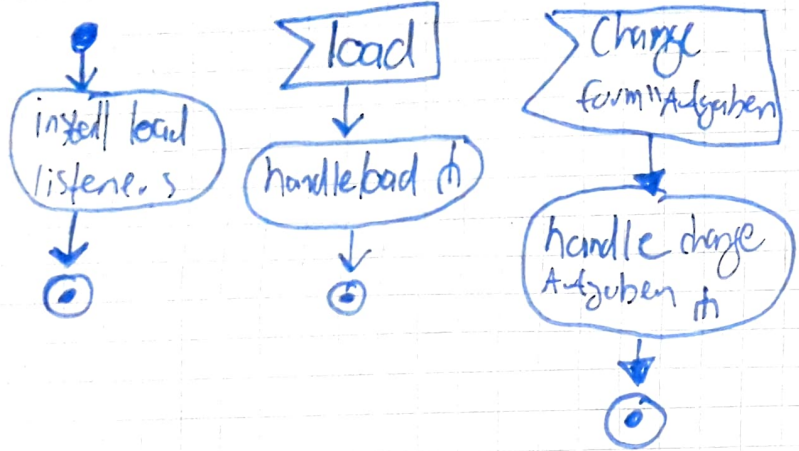 install load
listener s
load
handleload
Change
form "Aufgaben
handle change
Aufgaben